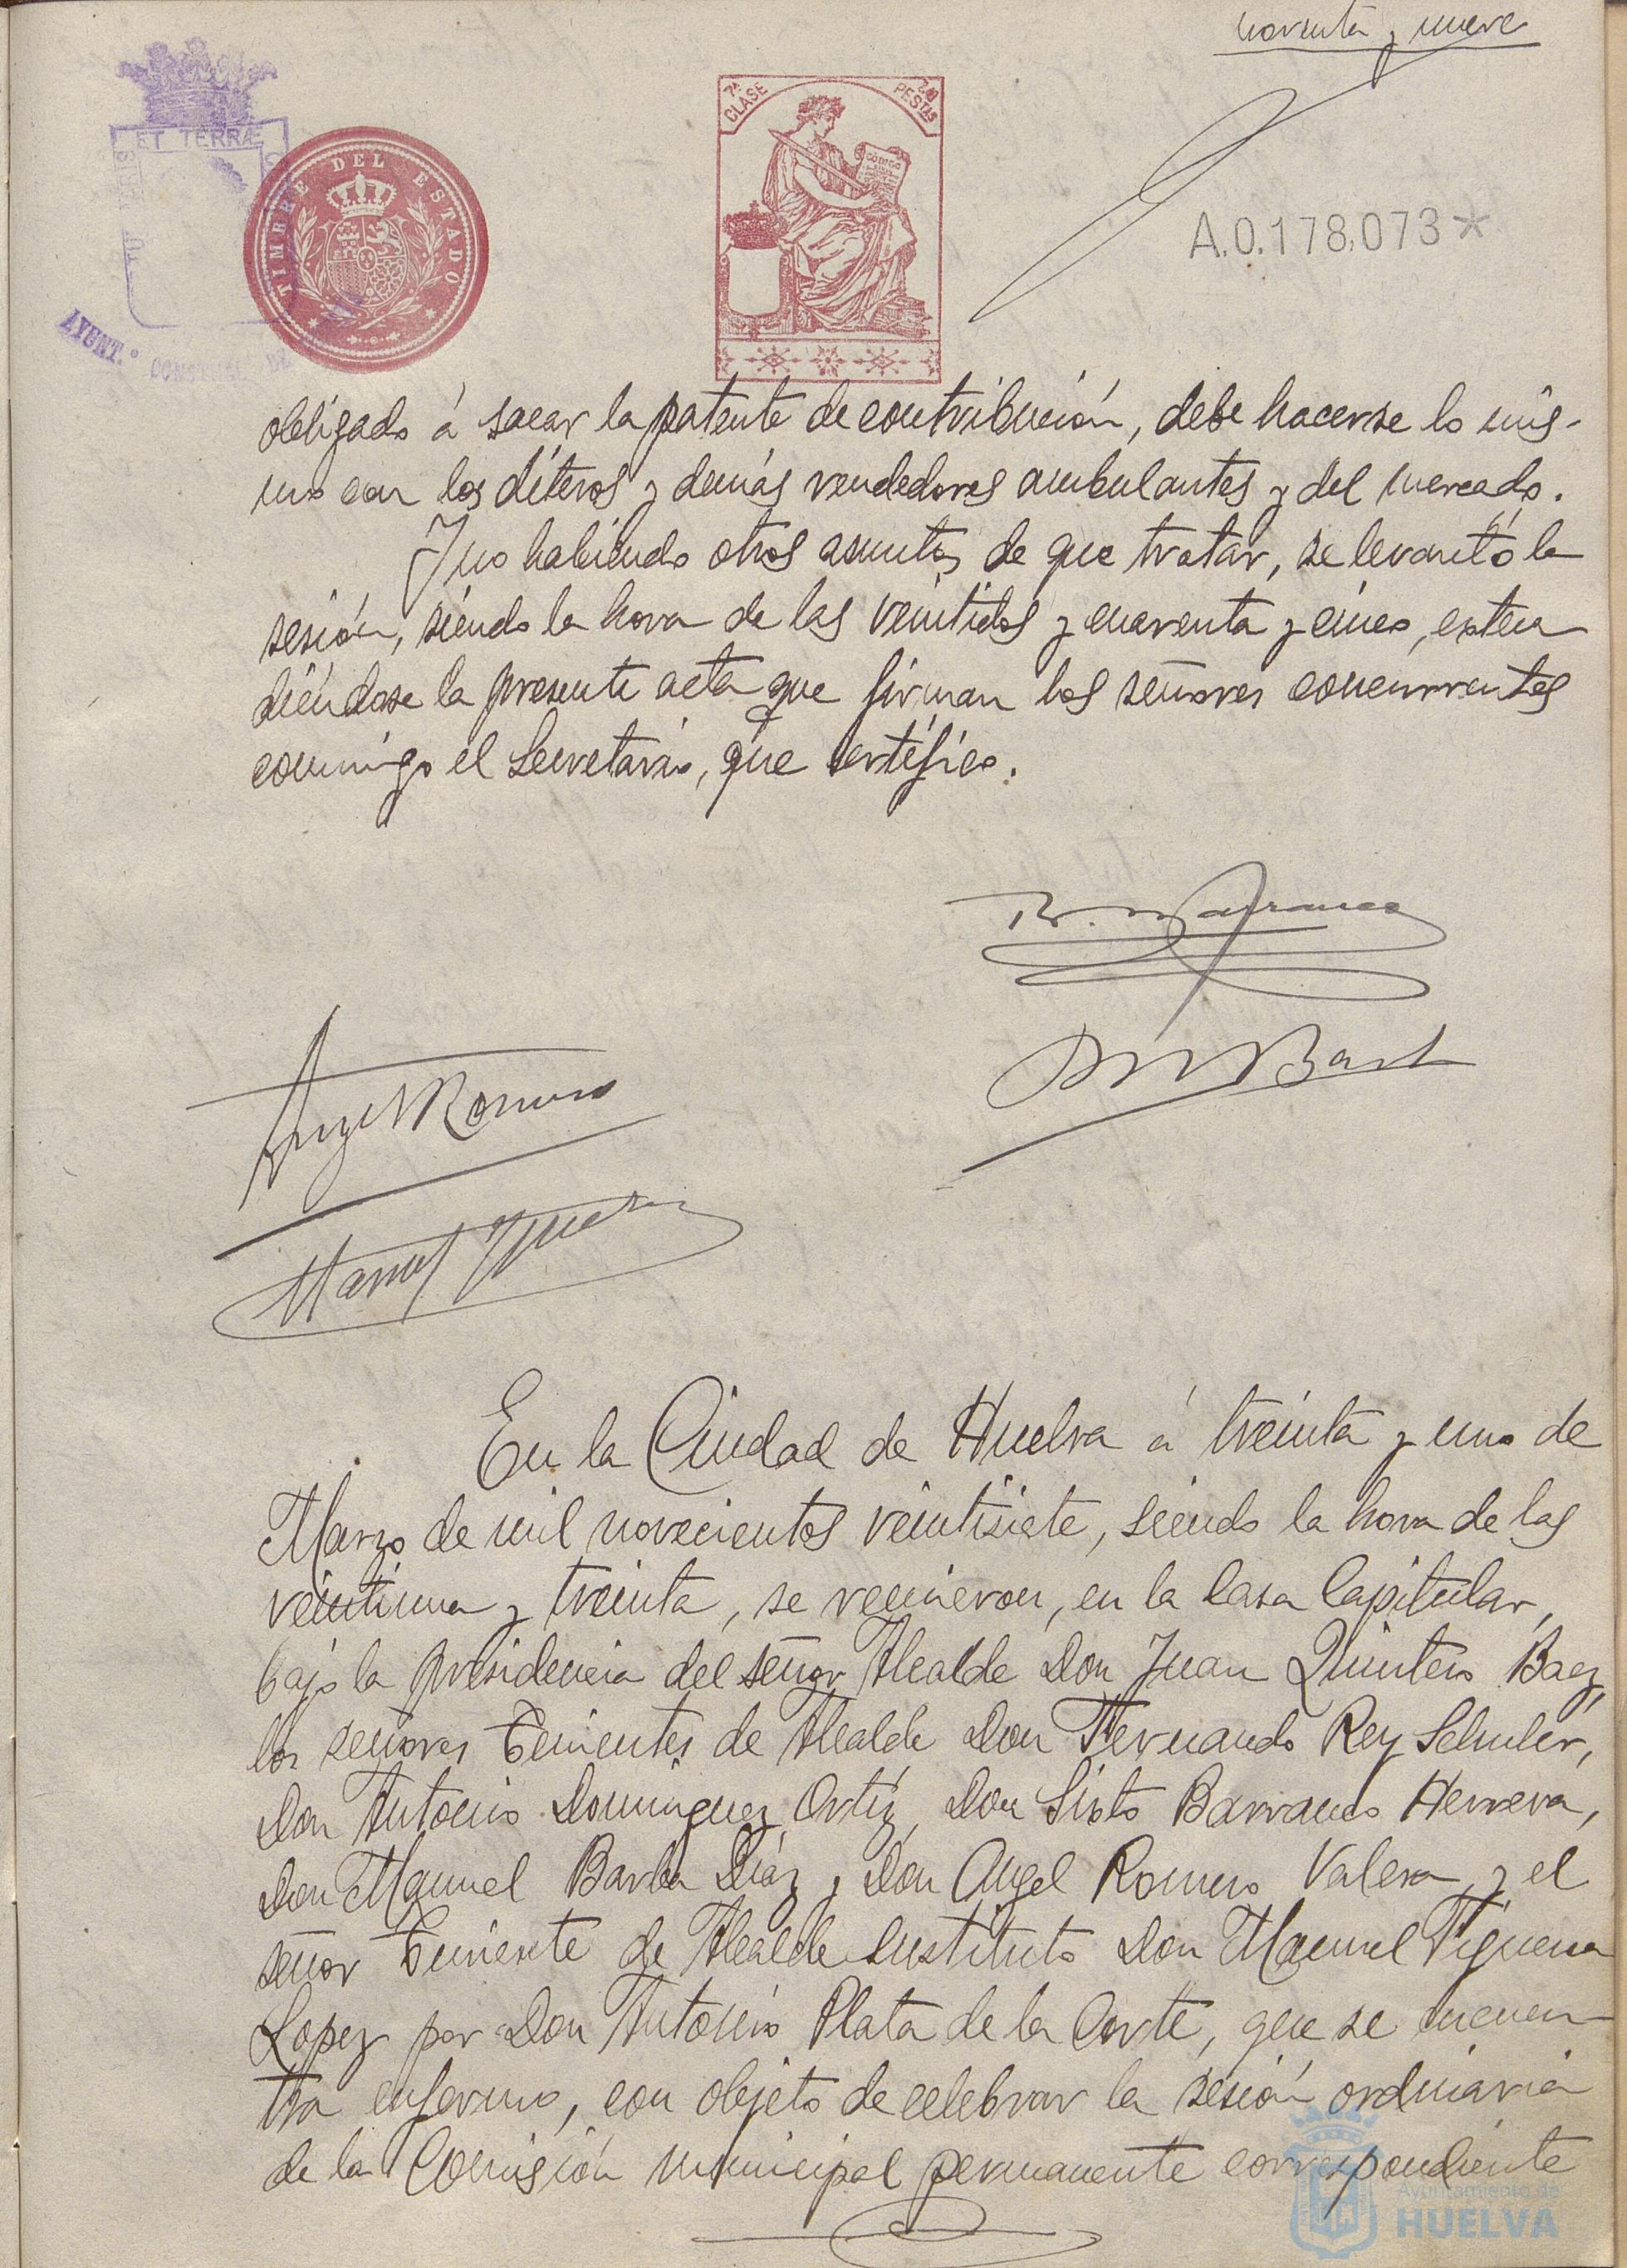 noventa y nueve
ET TERRÆ
TIMBRE DEL ESTADO
7ª CLASE
PESTAS
CÓDIGO
A.0.178,073*
AYUNT.º CONSTIT. DE
obligado á sacar la patente de contribución, debe hacerse lo mis-
mo con los diteros y demás vendedores ambulantes y del mercado.
Y no habiendo otros asuntos de que tratar, se levantó la
sesión, siendo la hora de las veintidos y cuarenta y cinco, exten
diéndose la presente acta que firman los señores concurrentes
conmigo el Secretario, que certifico.
Angel Romero
Manuel
En la Ciudad de Huelva á treinta y uno de
Marzo de mil novecientos veintisiete, siendo la hora de las
veintiuna y treinta, se reunieron, en la Casa Capitular,
bajo la presidencia del señor Alcalde Don Juan Quintero Baez,
los señores Tenientes de Alcalde Don Fernando Rey Schuler,
Don Antonio Dominguez Ortíz, Don Sixto Barranco Herrera,
Don Manuel Barba Diáz y Don Angel Romero Valera y el
señor Teniente de Alcalde sustituto Don Manuel Figueroa
Lopez por Don Antonio Plata de la Corte, que se encuen-
tra enfermo, con objeto de celebrar la sesión ordinaria
de la Comisión municipal permanente correspondiente
Ayuntamiento de
HUELVA